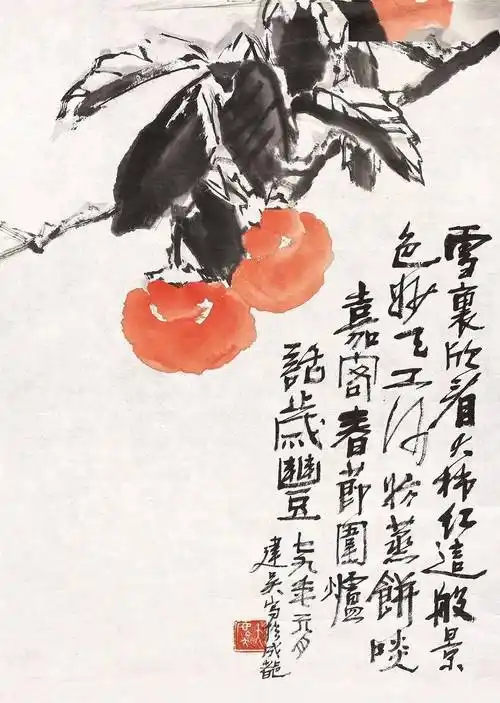 雪裏欣看大柿紅這般景
色妙天工粉蒸餅啖
嘉客春節圍爐
話歲豐
七九年元月
建吴写於成都